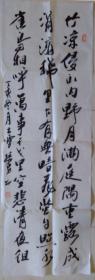 竹凉侵卧内野月满庭隅重露成
涓滴稀星乍有无暗飞萤自照水
宿鸟相呼萬事干戈里空悲清夜徂